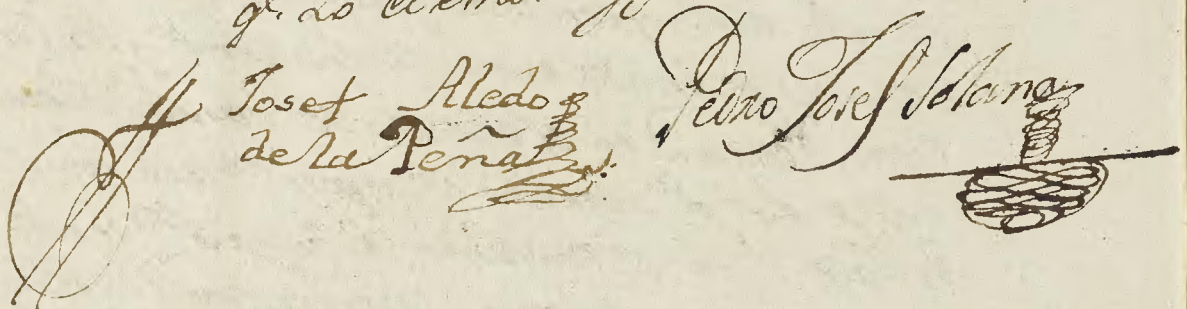 Josef Aledo
de la Peña
Pedro Josef Solano